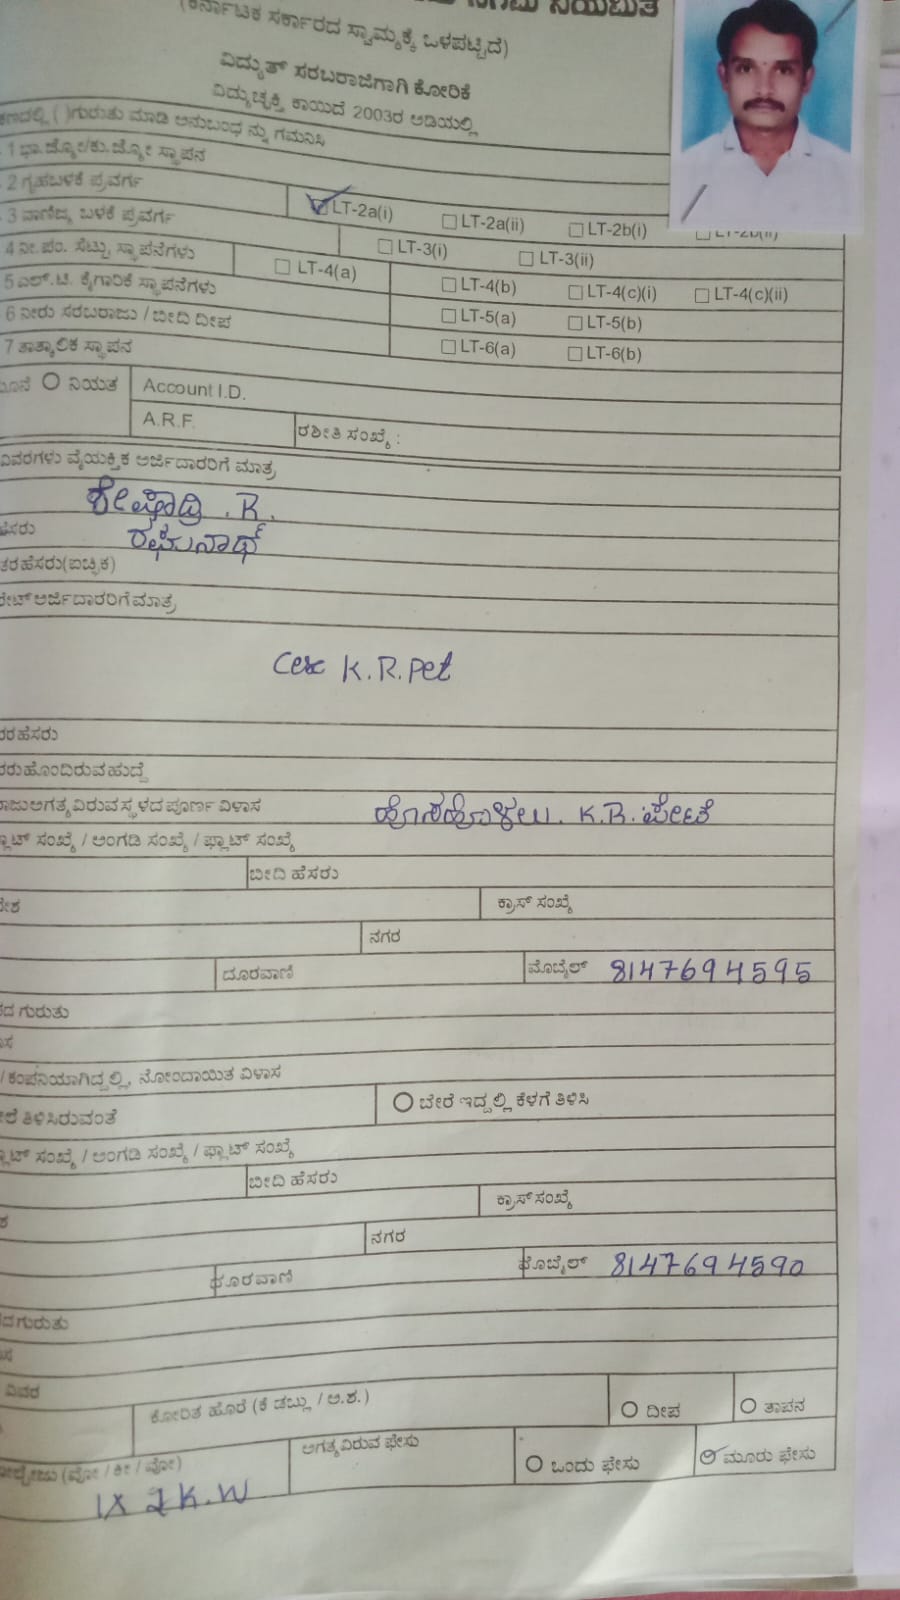 ನಿಗಮ ನಿಯಮಿತ
(ಕರ್ನಾಟಕ ಸರ್ಕಾರದ ಸ್ವಾಮ್ಯಕ್ಕೆ ಒಳಪಟ್ಟಿದೆ)
ವಿದ್ಯುತ್ ಸರಬರಾಜಿಗಾಗಿ ಕೋರಿಕೆ
ವಿದ್ಯುಚ್ಛಕ್ತಿ ಕಾಯಿದೆ 2003ರ ಅಡಿಯಲ್ಲಿ
( )ಗುರುತು ಮಾಡಿ ಅನುಬಂಧ ನ್ನು ಗಮನಿಸಿ
1 ಭಾ.ಜ್ಯೋ/ಕು.ಜ್ಯೋ ಸ್ಥಾಪನ
2 ಗೃಹಬಳಕೆ ಪ್ರವರ್ಗ LT-2a(i) LT-2a(ii) LT-2b(i) LT-2b(ii)
3 ವಾಣಿಜ್ಯ ಬಳಕೆ ಪ್ರವರ್ಗ LT-3(i) LT-3(ii)
4 ನೀ.ಪಂ. ಸೆಟ್ಟು ಸ್ಥಾಪನೆಗಳು LT-4(a) LT-4(b) LT-4(c)(i) LT-4(c)(ii)
5 ಎಲ್.ಟಿ. ಕೈಗಾರಿಕೆ ಸ್ಥಾಪನೆಗಳು LT-5(a) LT-5(b)
6 ನೀರು ಸರಬರಾಜು / ಬೀದಿ ದೀಪ LT-6(a) LT-6(b)
7 ತಾತ್ಕಾಲಿಕ ಸ್ಥಾಪನ
ನಿಯತ Account I.D.
A.R.F. ರಶೀತಿ ಸಂಖ್ಯೆ :
ವಿವರಗಳು ವೈಯಕ್ತಿಕ ಅರ್ಜಿದಾರರಿಗೆ ಮಾತ್ರ
ಶೇಷಾದ್ರಿ . R.
ಹೆಸರು ರಘುನಾಥ್
ತರ ಹೆಸರು(ಐಚ್ಛಿಕ)
ರೇಟ್ ಅರ್ಜಿದಾರರಿಗೆ ಮಾತ್ರ
Cesc K.R.Pet
ರರ ಹೆಸರು
ರರು ಹೊಂದಿರುವ ಹುದ್ದೆ
ರಾಜು ಅಗತ್ಯವಿರುವ ಸ್ಥಳದ ಪೂರ್ಣ ವಿಳಾಸ ಹೊಸಹೊಳಲು. K.R.ಪೇಟೆ
ಪ್ಲಾಟ್ ಸಂಖ್ಯೆ / ಅಂಗಡಿ ಸಂಖ್ಯೆ / ಫ್ಲಾಟ್ ಸಂಖ್ಯೆ
ಬೀದಿ ಹೆಸರು
ಕ್ರಾಸ್ ಸಂಖ್ಯೆ
ನಗರ
ದೂರವಾಣಿ ಮೊಬೈಲ್ 8147694595
ದ ಗುರುತು
/ ಕಂಪನಿಯಾಗಿದ್ದಲ್ಲಿ, ನೋಂದಾಯಿತ ವಿಳಾಸ
ತಿಳಿಸಿರುವಂತೆ ಬೇರೆ ಇದ್ದಲ್ಲಿ ಕೆಳಗೆ ತಿಳಿಸಿ
ಪ್ಲಾಟ್ ಸಂಖ್ಯೆ / ಅಂಗಡಿ ಸಂಖ್ಯೆ / ಫ್ಲಾಟ್ ಸಂಖ್ಯೆ
ಬೀದಿ ಹೆಸರು
ಕ್ರಾಸ್ ಸಂಖ್ಯೆ
ನಗರ
ದೂರವಾಣಿ ಮೊಬೈಲ್ 8147694590
ದ ಗುರುತು
ವಿವರ
ಕೋರಿತ ಹೊರೆ (ಕೆ ಡಬ್ಲ್ಯು / ಅ.ಶ.) ದೀಪ ತಾಪನ
ವೋಲ್ಟೇಜು (ವೋ / ಕೀ / ವೋ) ಅಗತ್ಯವಿರುವ ಫೇಸು ಒಂದು ಫೇಸು ಮೂರು ಫೇಸು
1X 2 K.W